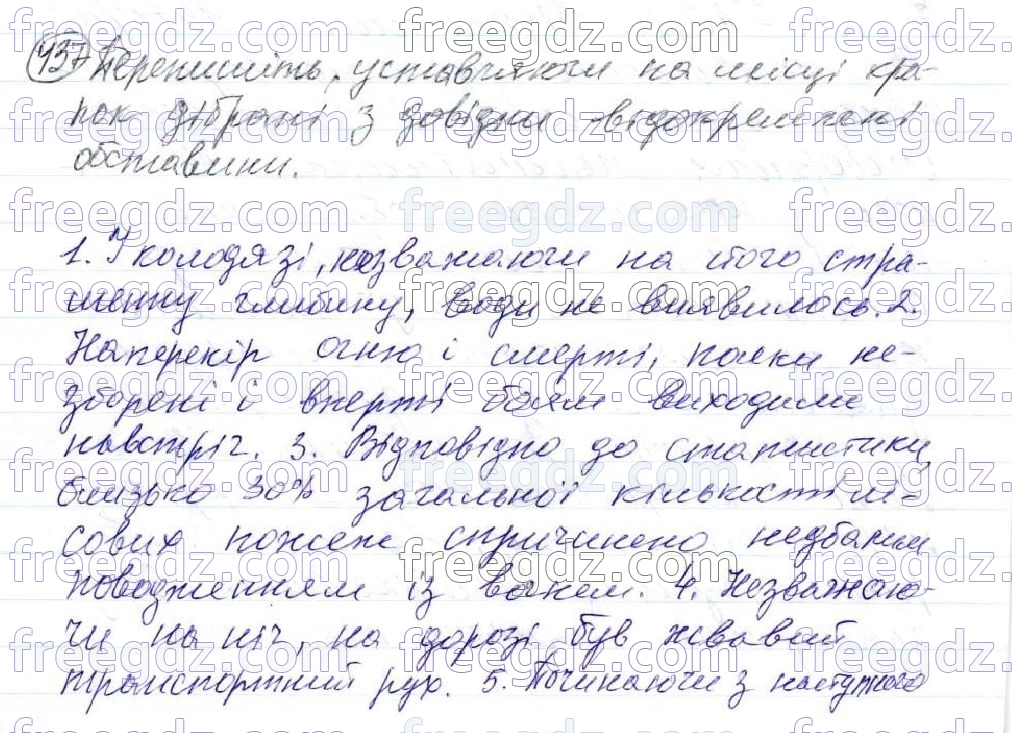 437 Перепишіть, уставляючи на місці кра-
пок дібрані з довідки відокремлені
обставини.
1. У колодязі, незважаючи на його стра-
шенну глибину, води не виявилось. 2.
Наперекір огню і смерті, полки не-
зборені і вперті боям виходили
навстріч. 3. Відповідно до статистики,
близько 30% загальної кількості лі-
сових пожеж спричинено недбалим
поводженням із вогнем. 4. Незважаю-
чи на ніч, на дорозі був жвавий
транспортний рух. 5. Починаючи з наступного
freegdz.com